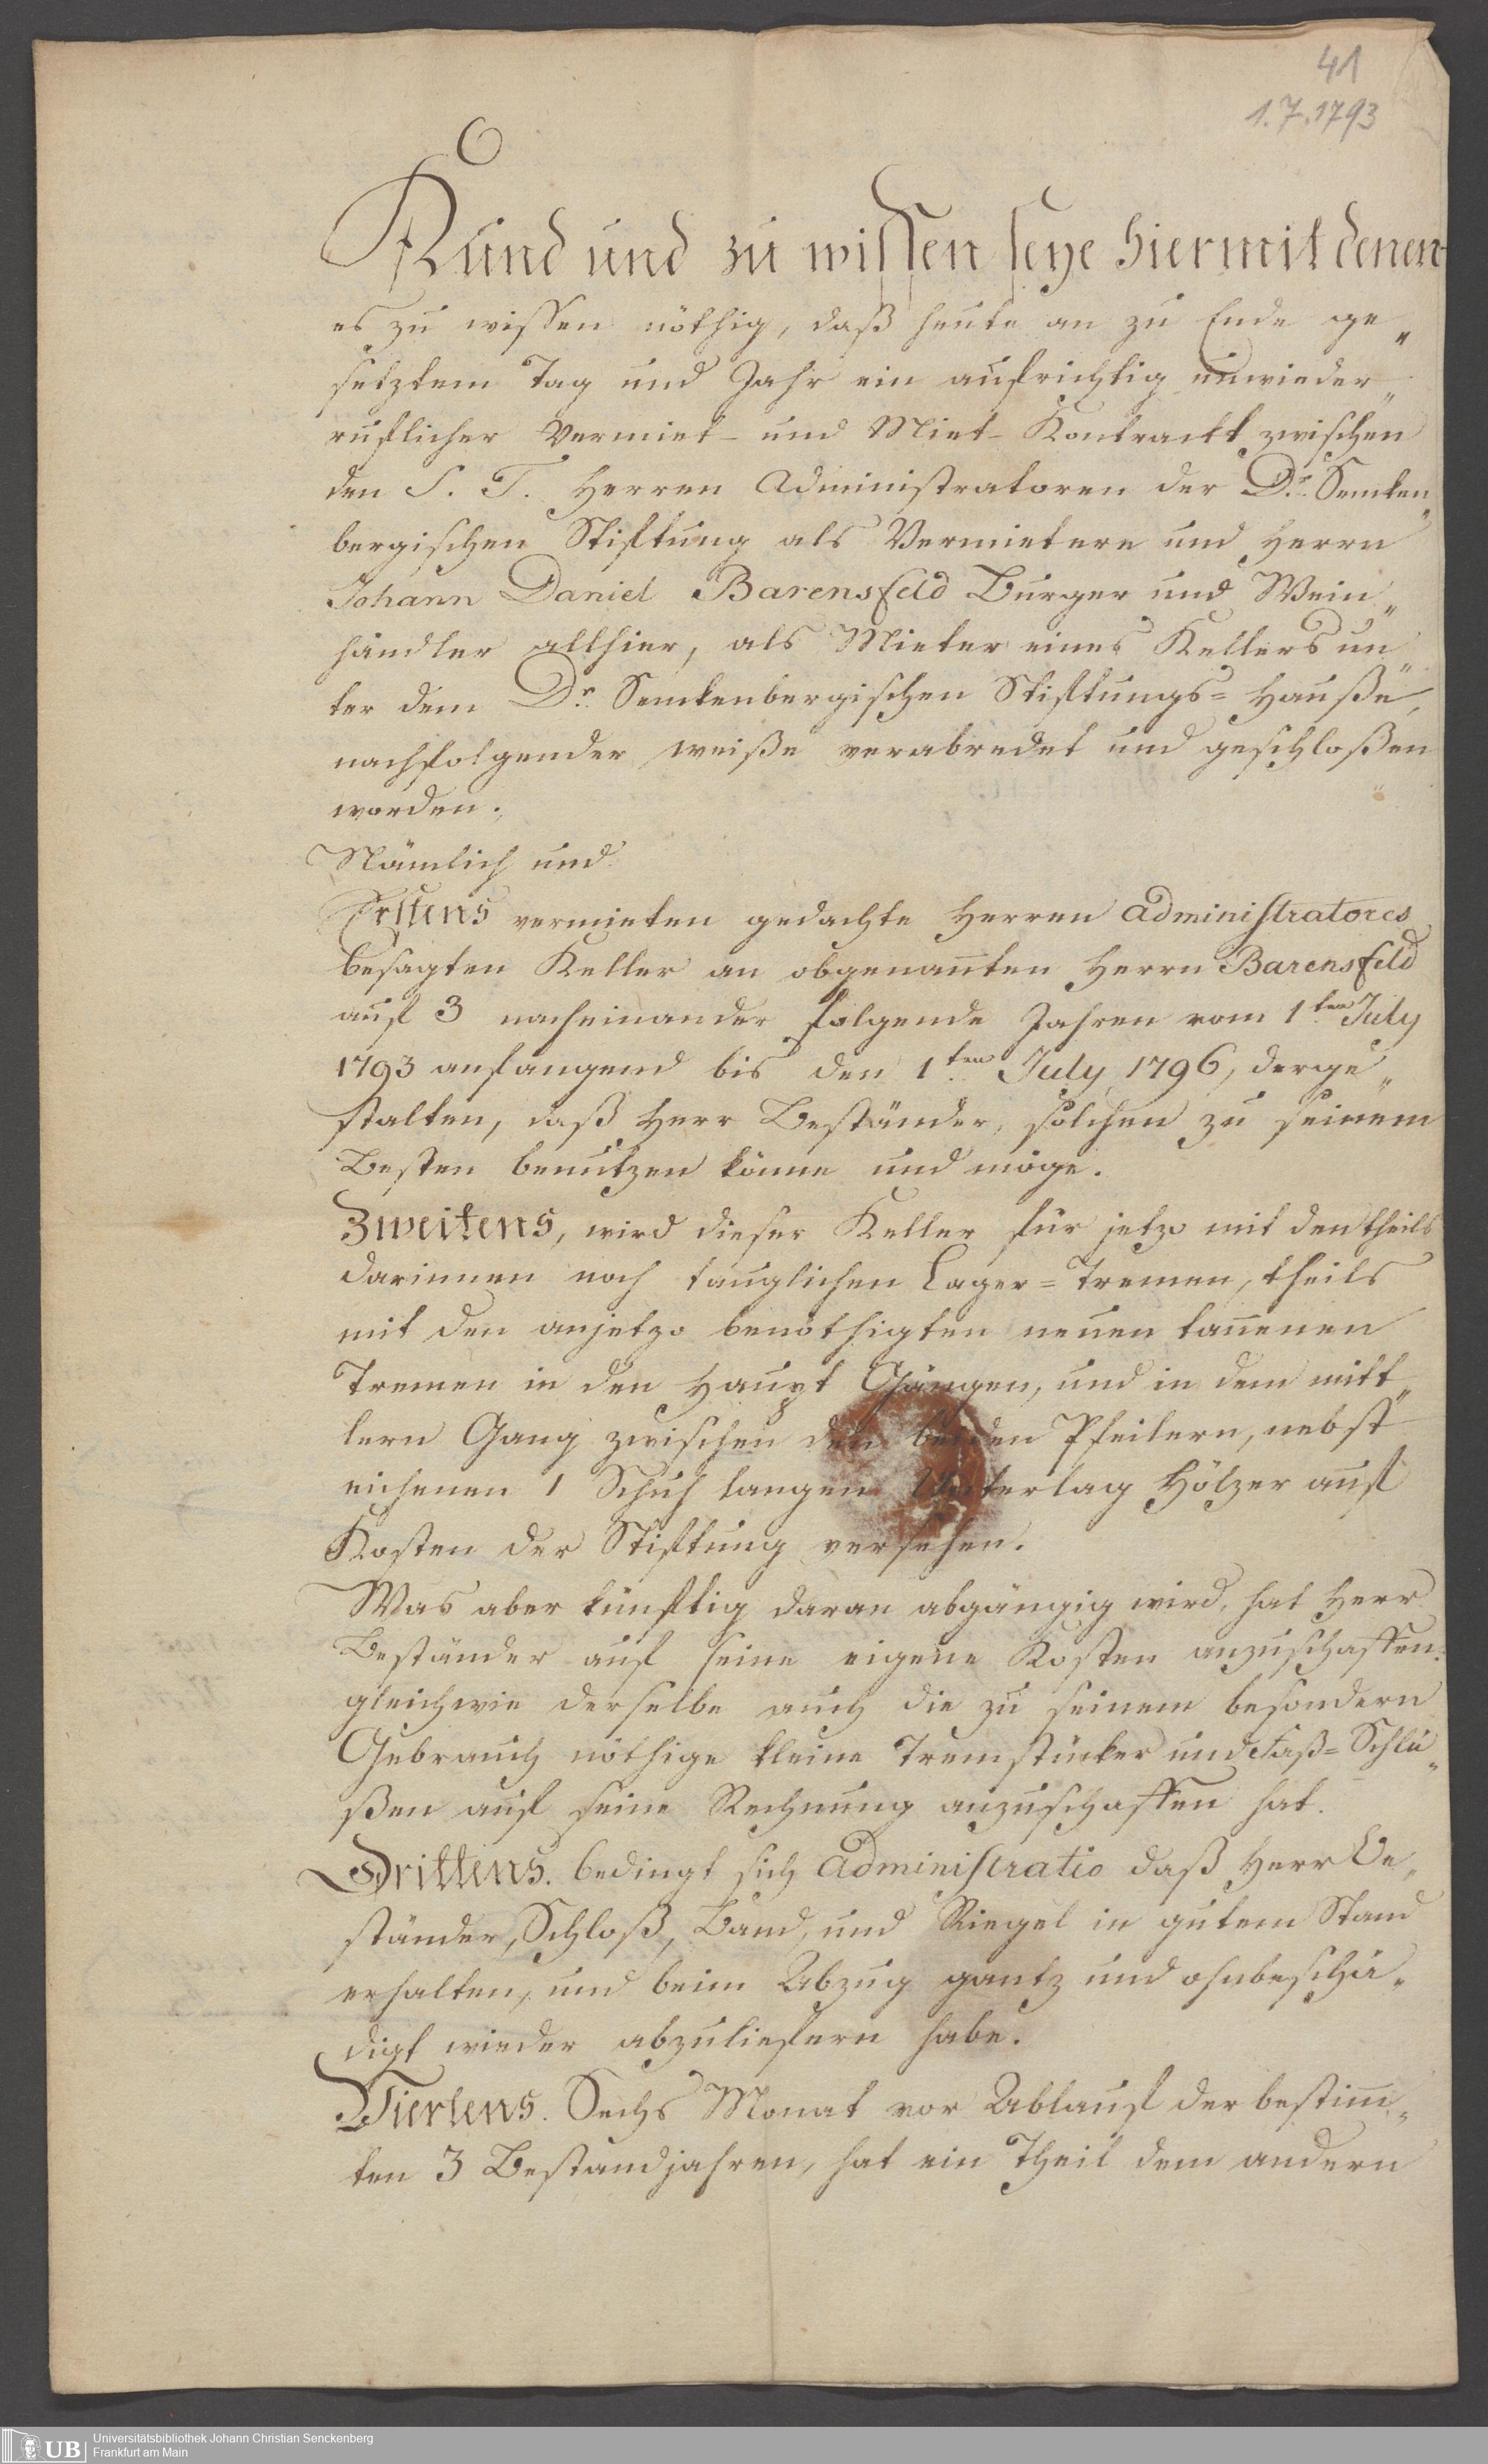 41
1.7.1793
Kund und zu wissen seye hiermit denen
es zu wißen nöthig, daß heute an zu Ende ge„
setztem Tag und Jahr ein aufrichtig unwieder„
ruflicher Vermiet- und Miet-Kontrackt zwischen
den S. T. Herren Administratoren der Dr. Senken„
bergischen Stiftung als Vermietern und Herrn
Johann Daniel Barensfeld Burger und Wein„
händler allhier, als Mieter eines Kellers un„
ter dem Dr. Senckenbergischen Stiftungs=Hauße,
nachfolgender weiße verabredet und geschloßen
worden.
Nämlich und
Erstens vermieten gedachte Herren Administratores
besagten Keller an obgenan̅ten Herrn Barensfeld
auf 3 nacheinander folgende Jahren vom 1ten July
1793 anfangend bis den 1ten July 1796, derge„
stalten, daß Herr Beständer, solchen zu seinem
Besten benutzen könne und möge.
Zweitens, wird dieser Keller für jetzo mit den theils
darinnen noch tauglichen Lager=Tremen, theils
mit den anjetzo benöthigten neuen tan̅enen
Tremen in den Haupt Gängen, und in dem mitt„
lern Gang zwischen den beiden Pfeilern, nebst
eichenen 1 Schuh langen Unterlag Hölzer auf
Kosten der Stiftung versehen.
Was aber künftig daran abgängig wird, hat Herr
Beständer auf seine eigene Kosten anzuschaffen.
gleichwie derselbe auch die zu seinem besondern
Gebrauch nöthige kleine Tremstücker und Faß=Schlü„
ßen auf seine Rechnung anzuschaffen hat.
Drittens. bedingt sich Administratio daß Herr Be„
ständer, Schloß, Band, und Riegel in gutem Stand
erhalten, und beim Abzug gantz und ohnbeschä„
digt wieder abzuliefern habe.
Viertens. Sechs Monat vor Ablauf der bestim̅„
ten 3 Bestandjahren, hat ein Theil dem andern
UB
Universitätsbibliothek Johann Christian Senckenberg
Frankfurt am Main